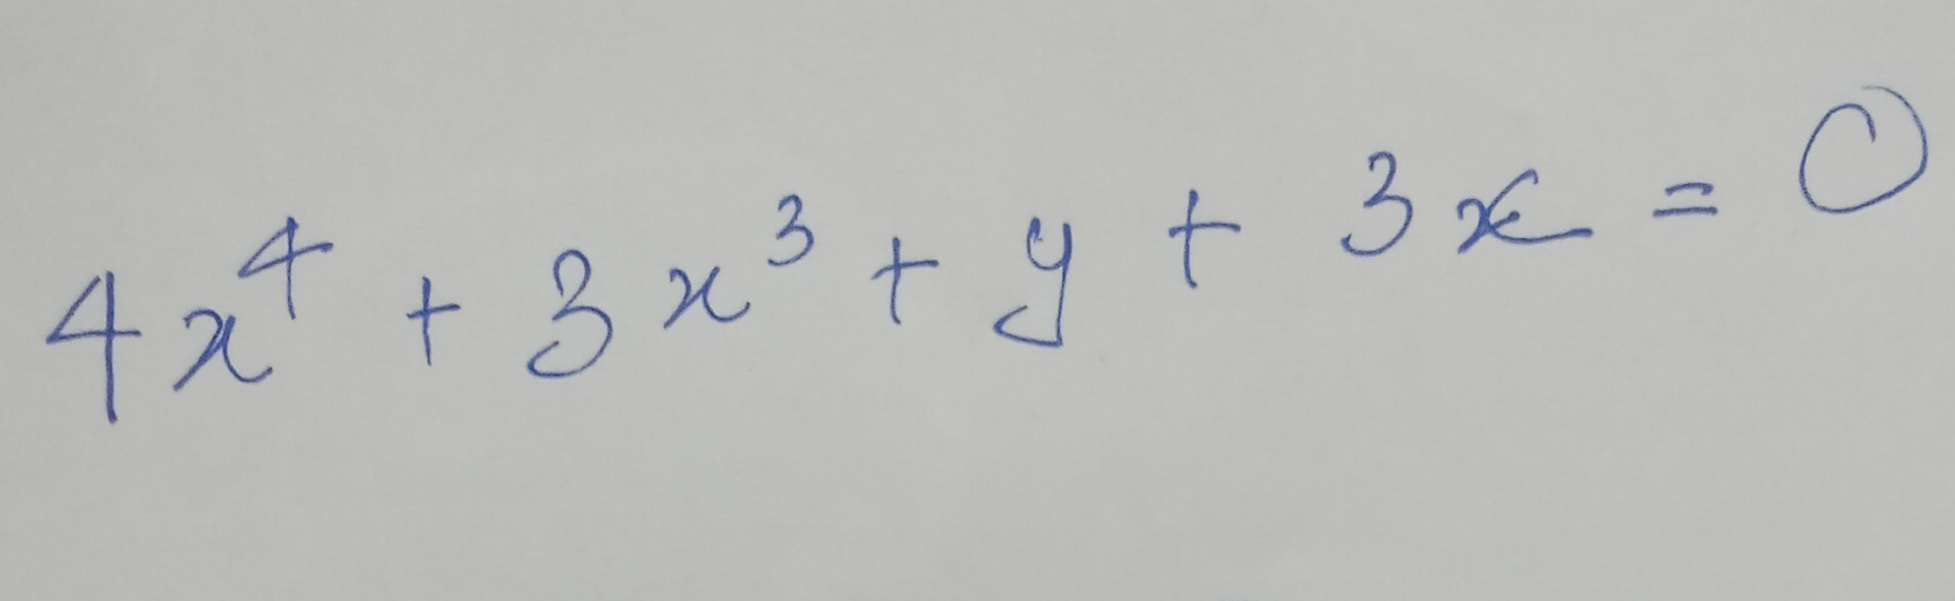 4x⁴ + 3x³ + y + 3x = 0